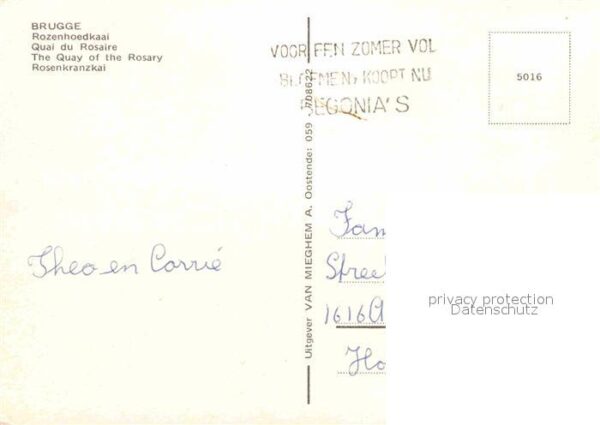 BRUGGE
Rozenhoedkaai
Quai du Rosaire
The Quay of the Rosary
Rosenkranzkai
VOOR EEN ZOMER VOL
BLOEMEN, KOOPT NU
BEGONIA'S
5016
Uitgever VAN MIEGHEM A. Oostende: 059 - 708622
Theo en Corrié
Fam
Spree
1616 A
Ho
privacy protection
Datenschutz